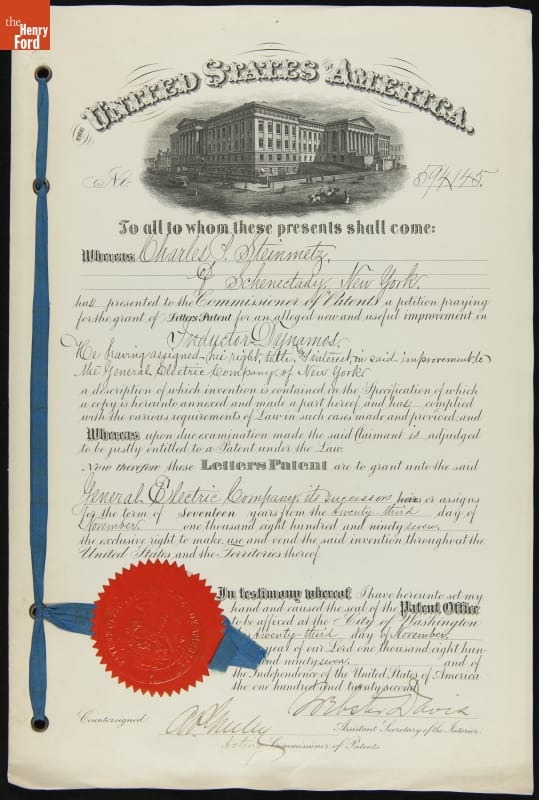 the
Henry
Ford
THE UNITED STATES OF AMERICA.
No. 594,145.
To all to whom these presents shall come:
Whereas Charles P. Steinmetz,
of Schenectady, New York,
has presented to the Commissioner of Patents a petition praying
for the grant of Letters Patent for an alleged new and useful improvement in
Inductor Dynamos,
He having assigned his right, title, & interest, in said improvement, to
the General Electric Company, of New York
a description of which invention is contained in the Specification of which
a copy is hereunto annexed and made a part hereof and has complied
with the various requirements of Law in such cases made and provided, and
Whereas upon due examination made the said Claimant is adjudged
to be justly entitled to a Patent under the Law.
Now therefore these Letters Patent are to grant unto the said
General Electric Company, its successors or assigns
for the term of Seventeen years from the twenty third day of
November, one thousand eight hundred and ninety seven,
the exclusive right to make, use and vend the said invention throughout the
United States and the Territories thereof.
In testimony whereof I have hereunto set my
hand and caused the seal of the Patent Office
to be affixed at the City of Washington
twenty third day of November,
year of our Lord one thousand eight hun-
and ninety seven, and of
the Independence of the United States of America
the one hundred and twenty second.
Webster Davis
Countersigned Assistant Secretary of the Interior.
Acting Commissioner of Patents